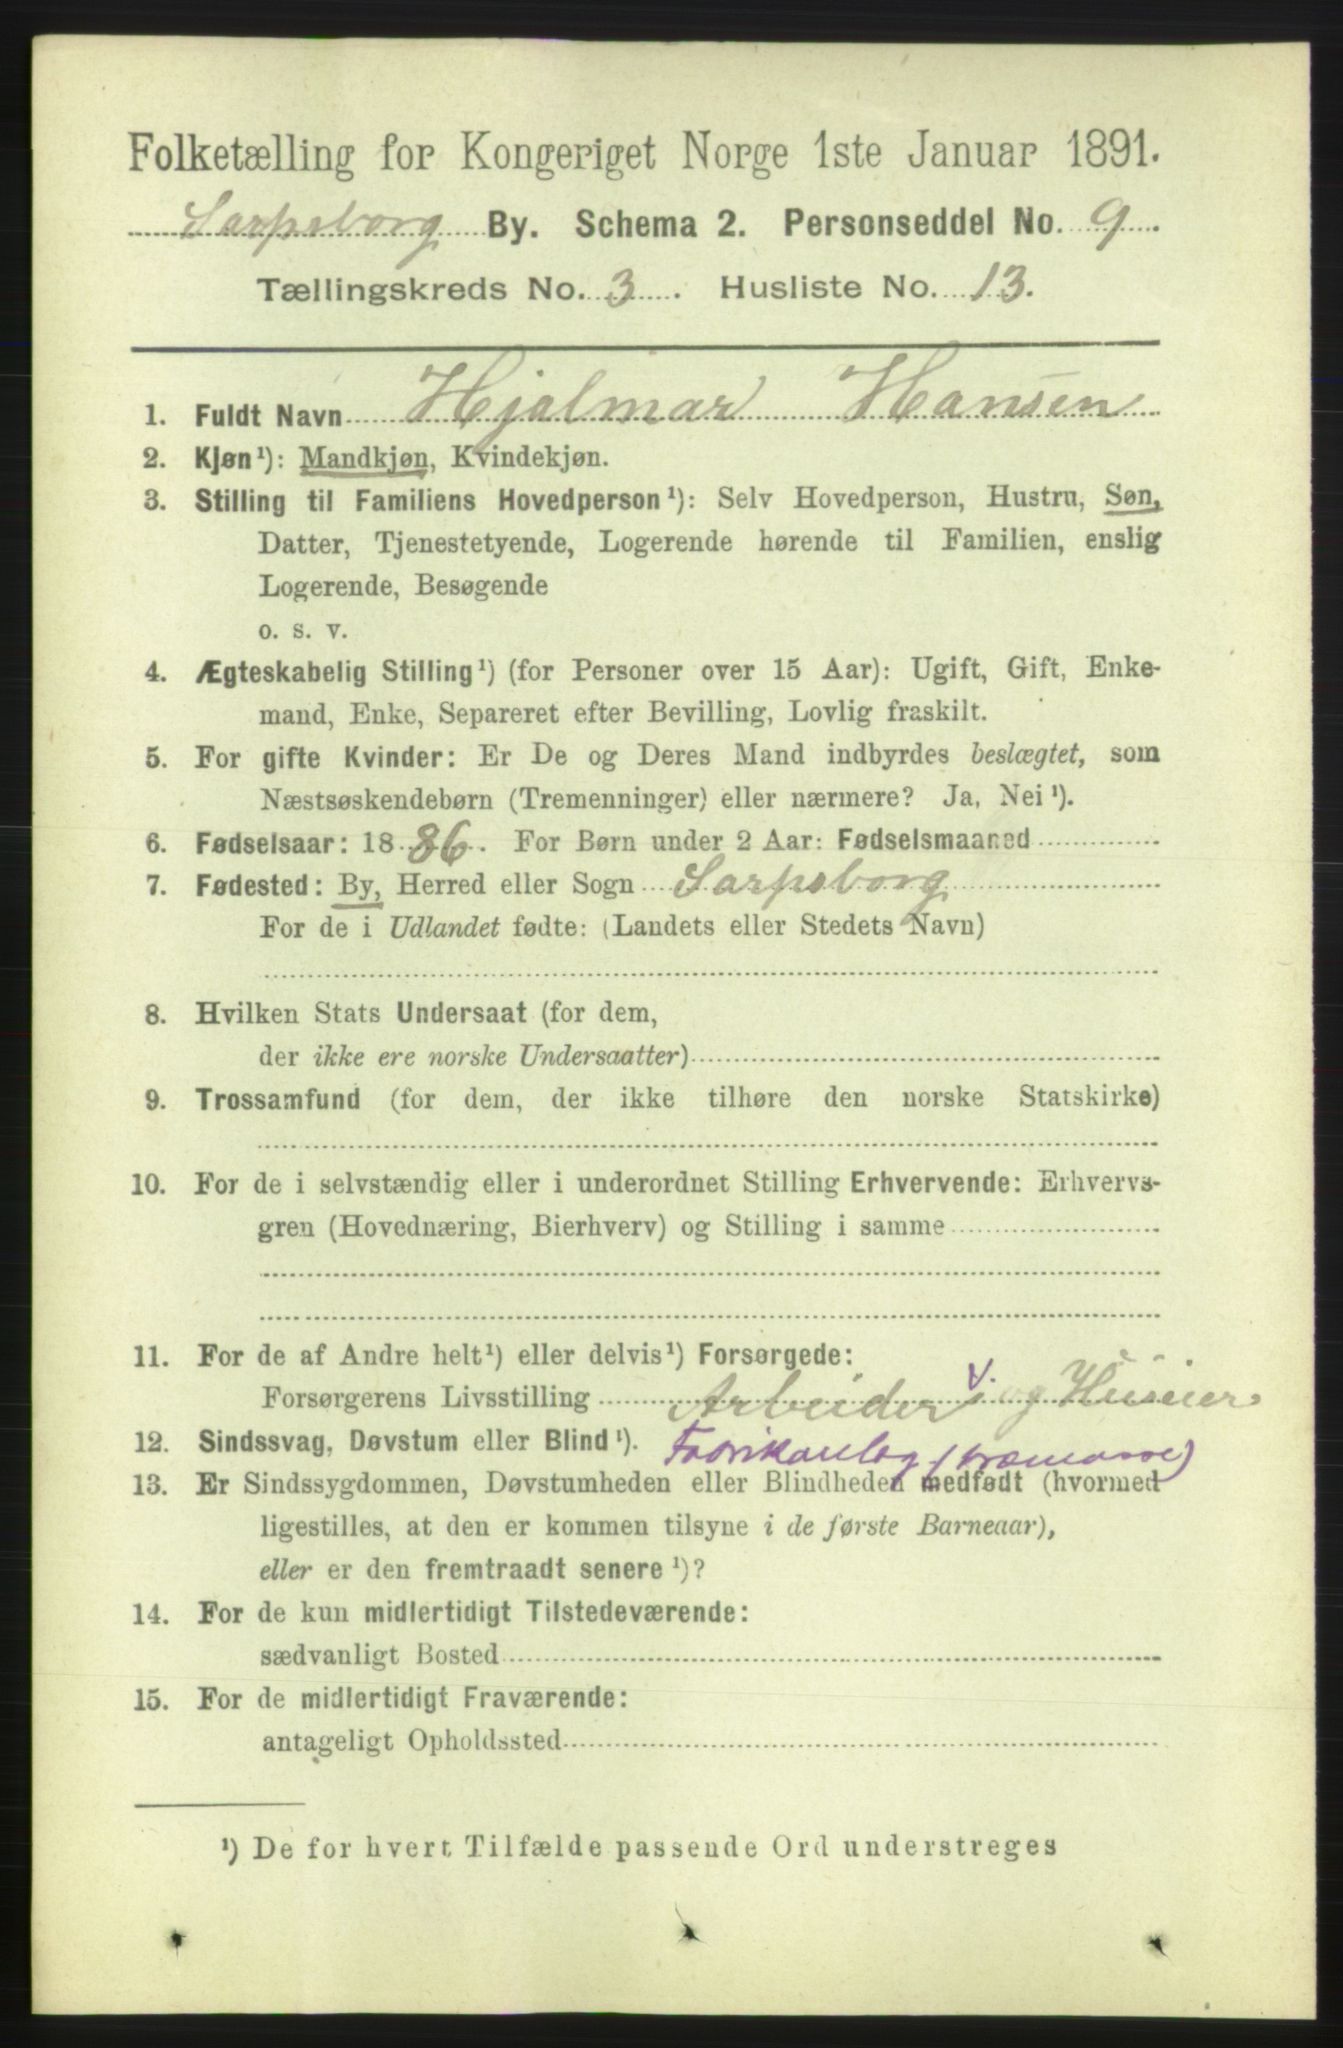 Folketælling for Kongeriget Norge 1ste Januar 1891.
Sarpsborg By. Schema 2. Personseddel No. 9.
Tællingskreds No. 3. Husliste No. 13.
1. Fuldt Navn Hjalmar Hansen
2. Kjøn¹): Mandkjøn, Kvindekjøn.
3. Stilling til Familiens Hovedperson¹): Selv Hovedperson, Hustru, Søn,
Datter, Tjenestetyende, Logerende hørende til Familien, enslig
Logerende, Besøgende
o. s. v.
4. Ægteskabelig Stilling¹) (for Personer over 15 Aar): Ugift, Gift, Enke-
mand, Enke, Separeret efter Bevilling, Lovlig fraskilt.
5. For gifte Kvinder: Er De og Deres Mand indbyrdes beslægtet, som
Næstsøskendebørn (Tremenninger) eller nærmere? Ja, Nei¹).
6. Fødselsaar: 1886. For Børn under 2 Aar: Fødselsmaaned
7. Fødested: By, Herred eller Sogn Sarpsborg
For de i Udlandet fødte: (Landets eller Stedets Navn)
8. Hvilken Stats Undersaat (for dem,
der ikke ere norske Undersaatter)
9. Trossamfund (for dem, der ikke tilhøre den norske Statskirke)
10. For de i selvstændig eller i underordnet Stilling Erhvervende: Erhvervs-
gren (Hovednæring, Bierhverv) og Stilling i samme
11. For de af Andre helt¹) eller delvis¹) Forsørgede:
Forsørgerens Livsstilling Arbeider og Huseier
12. Sindssvag, Døvstum eller Blind¹). Fabrikanlæg (træmasse)
13. Er Sindssygdommen, Døvstumheden eller Blindheden medfødt (hvormed
ligestilles, at den er kommen tilsyne i de første Barneaar),
eller er den fremtraadt senere¹)?
14. For de kun midlertidigt Tilstedeværende:
sædvanligt Bosted
15. For de midlertidigt Fraværende:
antageligt Opholdssted
¹) De for hvert Tilfælde passende Ord understreges